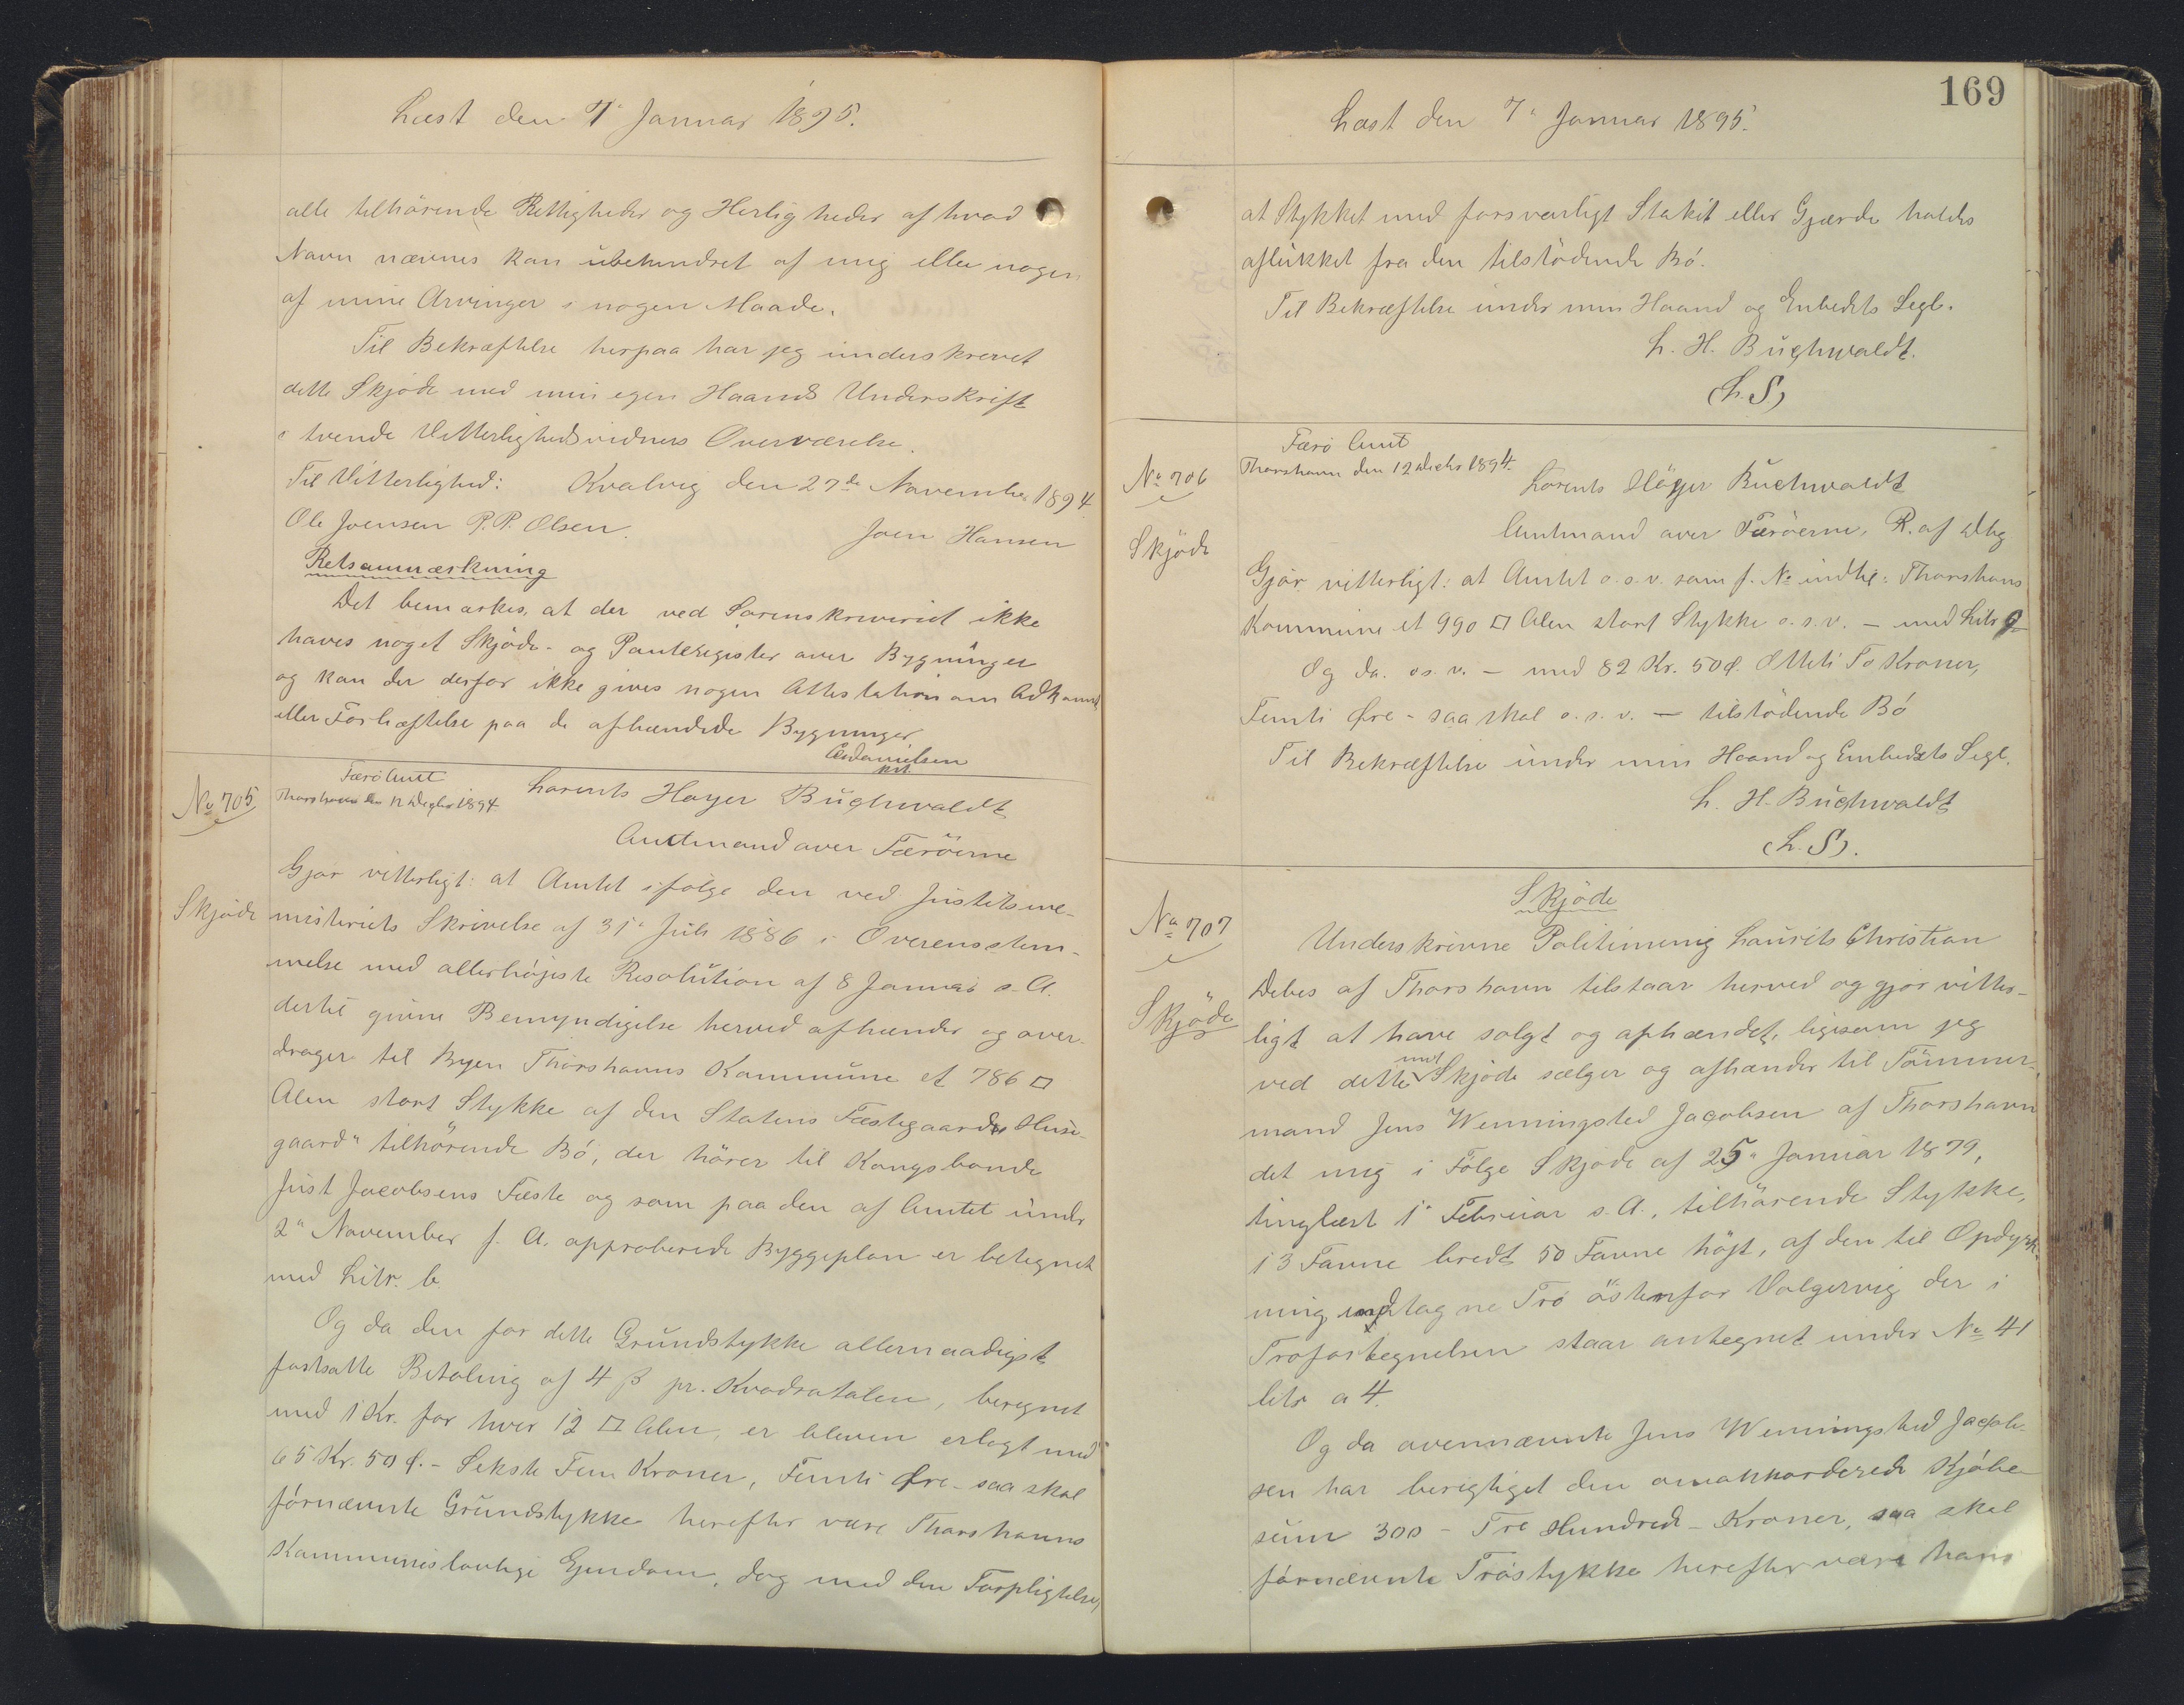 Læst den 7' Januar 1895.
alle tilhörende Rettigheder og Herligheder af hvad
Navn nævnes kan ubehindret af mig eller nogen
af mine Arvinger i nogen Maade.
Til Bekræftelse herpaa har jeg underskrevet
dette Skjöde med min egen Haands Underskrift
i tvende Vitterlighedsvidners Overværelse.
Til Vitterlighed: Kvalvig den 27de November 1894
Ole Joensen P.P. Olsen. Joen Hansen
Retsanmærkning
Det bemærkes, at der ved Sorenskriveriet ikke
haves noget Skjöde- og Panteregister over Bygninger
og kan der derfor ikke gives nogen Attestation om Adkomst
eller Forhæftelse paa de afhændede Bygninger
Færö Amt
Thorshavn den 12 Decbr 1894.
No 705
Lorents Høyer Buchwaldt
Amtmand over Færöerne
Gjör vitterligt: at Amtet ifölge den ved Justitsmi-
Skjöde
nisteriets Skrivelse af 31' Juli 1886 i Overensstem-
melse med allerhöjeste Resolution af 8 Januar s. A.
dertil givne Bemyndigelse herved afhænder og over-
drager til Byen Thorshavns Kommune et 786 □
Alen stort Stykke af den Statens Fæstegaard „Huse-
gaard" tilhörende Bö, der hörer til Kongsbonde
Just Jacobsens Fæste og som paa den af Amtet under
2" November f. A. approberede Byggeplan er betegnet
med Litr. b.
Og da den for dette Grundstykke allernaadigst
fastsatte Betaling af 4 β pr. Kvadratalen, beregnet
med 1 Kr. for hver 12 □ Alen, er bleven erlagt med
65 Kr. 50 Ø. - Seksti Fem Kroner, Femti Øre - saa skal
fornævnte Grundstykke herefter være Thorshavns
Kommunes lovlige Ejendom, dog med den Forpligtelse,
169
Læst den 7" Januar 1895.
at Stykket med forsvarligt Stakit eller Gjærde holdes
aflukket fra den tilstödende Bö.
Til Bekræftelse under min Haand og Embedets Segl.
L. H. Buchwaldt.
(L.S)
Færö Amt
Thorshavn den 12 Decbr 1894.
No 706
Lorents Höyer Buchwaldt
Amtmand over Færöerne, R. af Dbg
Skjöde
Gjör vitterligt: at Amtet o.s.v. som f. No indtil: Thorshavns
Kommune et 990 □ Alen stort Stykke o.s.v. - med Litr
Og da. os.v. - med 82 Kr. 50 Ø. Otteti To Kroner,
Femti Øre - saa skal o.s.v. - tilstödende Bö
Til Bekræftelse under min Haand og Embedets Segl.
L. H. Buchwaldt
(L.S).
Skjöde
No 707
Skjöde
Underskrevne Politimænig Laurits Christian
Debes af Thorshavn tilstaar herved og gjör vitter-
ligt at have solgt og afhændet, ligesom jeg
ved dette mit Skjöde sælger og afhænder til Tömmer-
mand Jens Wenningsted Jacobsen af Thorshavn
det mig i Fölge Skjöde af 25" Januar 1879,
tinglæst 1" Februar s. A., tilhörende Stykke,
13 Favne bredt 50 Favne höjt, af den til Opdyrk-
ning indtagne Trö östenfor Valgervig der i
Tröfortegnelsen staar antegnet under No 41
litr a 4.
Og da ovennævnte Jens Wenningsted Jacob-
sen har berigtiget den omakkorderede Kjöbe
sum 300 - Tre Hundrede - Kroner, saa skal
fornævnte Tröstykke herefter være hans